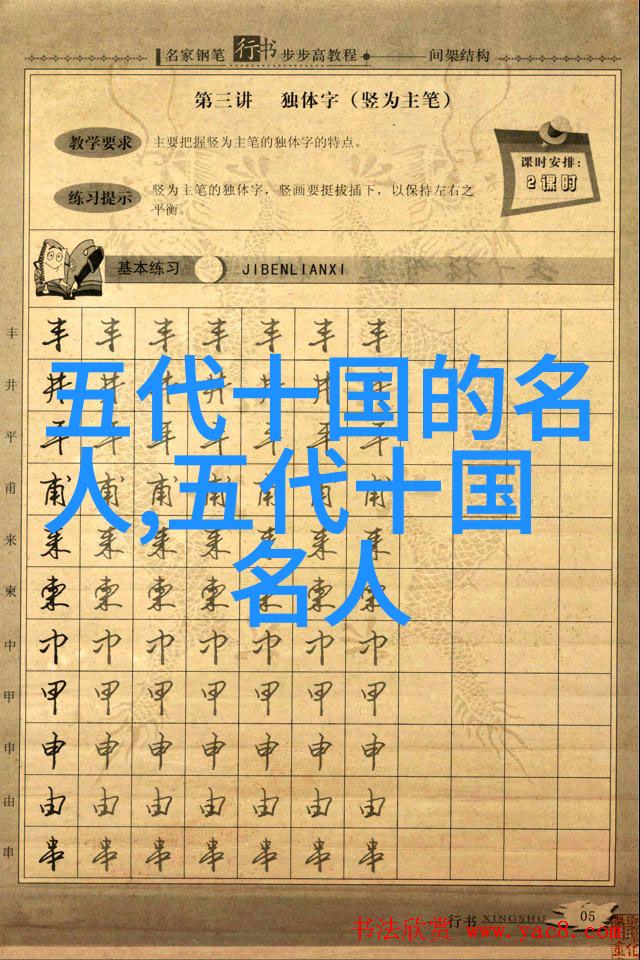 名家钢笔行书步步高教程 间架结构
第三讲 独体字（竖为主笔）
教学要求 主要把握竖为主笔的独体字的特点。
课时安排：
2课时
练习提示 竖为主笔的独体字，竖画要挺拔插下，以保持左右之
平衡。
基本练习 JIBENLIANXI
丰 丰 丰 丰 丰 丰 丰 丰
井 井 井 井 井 井 井 井
平 平 平 平 平 平 平 平
甫 甫 甫 甫 甫 甫 甫 甫
来 来 来 来 来 来 来 来
柬 柬 柬 柬 柬 柬 柬 柬
中 中 中 中 中 中 中 中
甲 甲 甲 甲 甲 甲 甲 甲
申 申 申 申 申 申 申 申
由 由 由 由 由 由 由 由
串 串 串 串 串 串 串 串
五代十国的名
人,五代十国
名人
行书 XINGSHU 05
书法欣赏 www.yac8.com